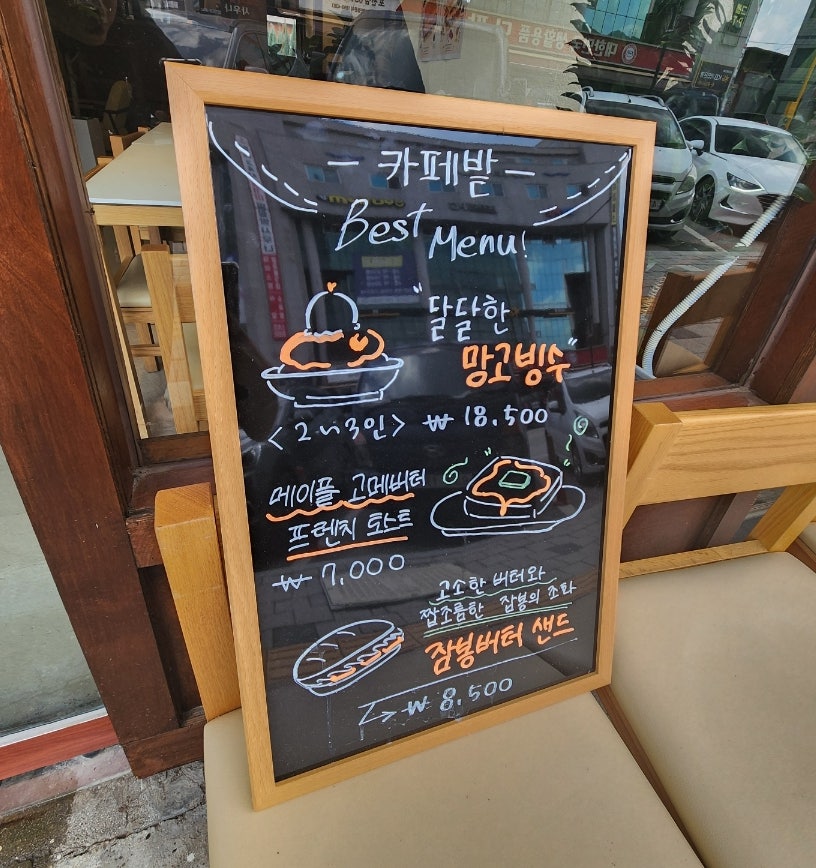 - 카페밭 -
Best Menu!
"달달한
망고빙수"
<2~3인> ₩ 18,500
메이플 고메버터
프렌치 토스트
₩ 7,000
고소한 버터와
짭조름한 잠봉의 조화
잠봉버터 샌드
↳ ₩ 8,500